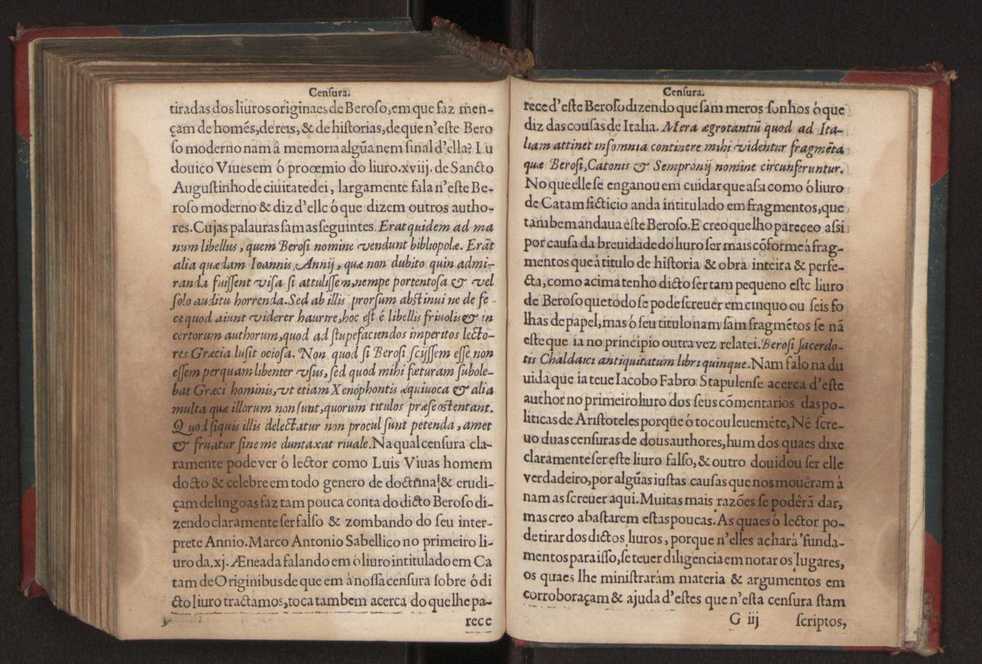 Censura.
tiradas dos liuros originaes de Beroso, em que faz men-
çam de homẽs, de reis, & de historias, de que n'este Bero
so moderno nam á memoria algũa nem sinal d'ella? Lu
douico Viuesem ó proœmio do liuro.xviij. de Sancto
Augustinho de ciuitate dei, largamente fala n'este Be-
roso moderno & diz d'elle ó que dizem outros autho-
res. Cujas palauras sam as seguintes. Erat quidem ad ma
num libellus, quem Berosi nomine vendunt bibliopolæ. Erãt
alia quædam Ioannis Annij, quæ non dubito quin admi-
randa fuissent visa si attulissem, nempe portentosa & vel
solo auditu horrenda. Sed ab illis prorsum abstinui ne de fe-
ce quod aiunt viderer haurire, hoc est é libellis friuolis & in
certorum authorum, quod ad stupefaciendos imperitos lecto-
res Græcia lusit ociosa. Non quod si Berosi scijssem esse non
essem perquam libenter vsus, sed quod mihi fœturam subole-
bat Græci hominis, vt etiam Xenophontis æquiuoca & alia
multa quæ illorum non sunt, quorum titulos præse ostentant.
Quod siquis illis delectatur non procul sunt petenda, amet
& fruatur sine me duntaxat riuale. Na qual censura cla-
ramente pode ver ó lector como Luis Viuas homem
docto & celebre em todo genero de doctrina, & erudi-
çam de lingoas faz tam pouca conta do dicto Beroso di-
zendo claramente ser falso & zombando do seu inter-
prete Annio. Marco Antonio Sabellico no primeiro li-
uro da.xj. Æneada falando em ó liuro intitulado em Ca
tam de Originibus de que em á nossa censura sobre ó di
cto liuro tractamos, toca tambem acerca do que lhe pa-
rece
Censura.
rece d'este Beroso dizendo que sam meros sonhos ó que
diz das cousas de Italia. Mera ægrotantiũ quod ad Ita-
liam attinet insomnia continere mihi videntur fragmẽta
quæ Berosi, Catonis & Sempronij nomine circunferuntur.
No que elle se enganou em cuidar que assi como ó liuro
de Catam ficticio anda intitulado em fragmentos, que
tambem andaua este Beroso. E creo que lho pareceo assi
por causa da breuidade do liuro ser mais cõforme á frag-
mentos que á titulo de historia & obra inteira & perfe-
cta, como acima tenho dicto ser tam pequeno este liuro
de Beroso que todo se pode screuer em cinquo ou seis fo
lhas de papel, mas ó seu titulo nam sam fragmẽtos se nã
este que ia no principio outra vez relatei. Berosi sacerdo-
tis Chaldaici antiquitatum libri quinque. Nam falo na du
uida que ia teue Iacobo Fabro Stapulense acerca d'este
author no primeiro liuro dos seus cõmentarios das po-
liticas de Aristoteles porque ó tocou leuemẽte, Nẽ scre-
uo duas censuras de dous authores, hum dos quaes dixe
claramente ser este liuro falso, & outro douidou ser elle
verdadeiro, por algũas iustas causas que nos mouêram á
nam as screuer aqui. Muitas mais razões se podêrã dar,
mas creo abastarem estas poucas. As quaes ó lector po-
de tirar dos dictos liuros, porque n'elles achará funda-
mentos para isso, se teuer diligencia em notar os lugares,
os quaes lhe ministrarám materia & argumentos em
corroboraçam & ajuda d'estes que n'esta censura stam
G iij scriptos,